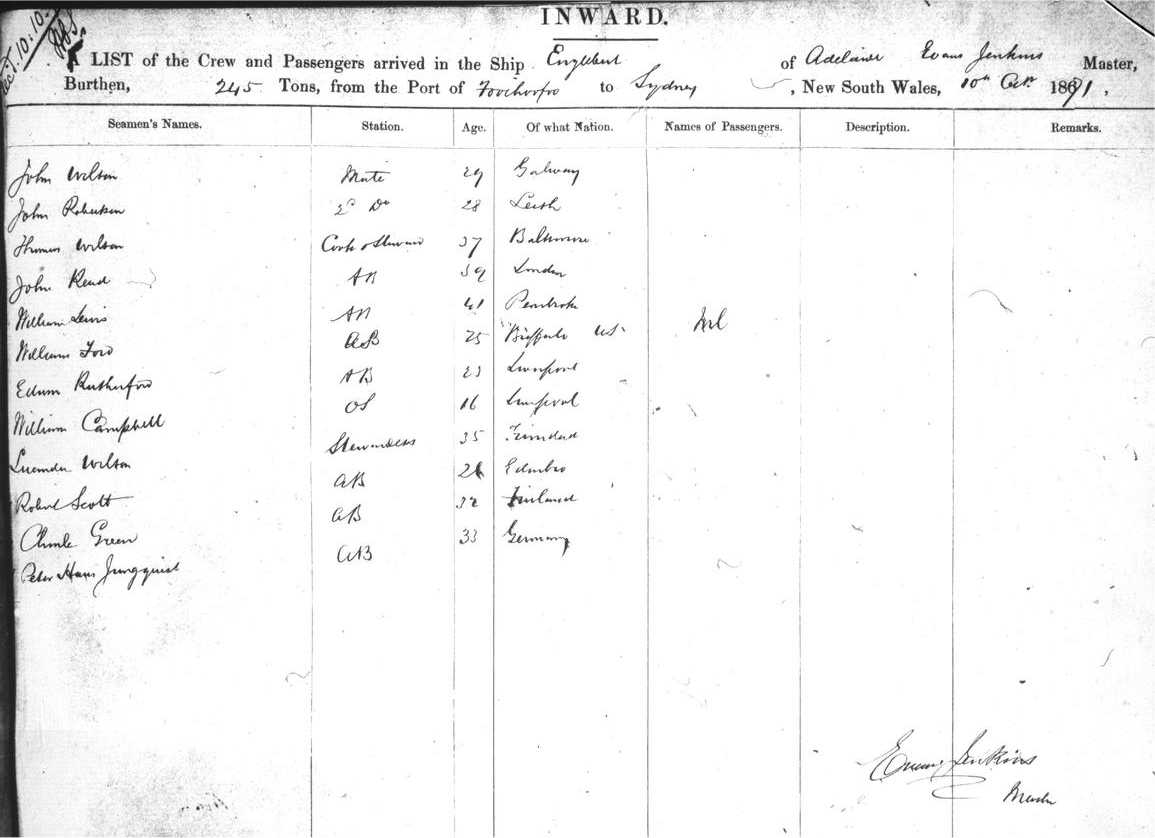 INWARD.
A LIST of the Crew and Passengers arrived in the Ship Englebert of Adelaide Evans Jenkins Master,
Burthen, 245 Tons, from the Port of to Sydney, New South Wales, 10th Oct. 1871,
Seamen's Names. Station. Age. Of what Nation. Names of Passengers. Description. Remarks.
John Wilson Mate 29 Galway
John Robertson 2d Do 28 Leith
Thomas Wilson Cook & Steward 37 Baltimore
John Read AB 39 London
William Lewis AB 41 Pembroke
William Ford AB 25 Buffalo US Nil
Edwin Rutherford AB 23 Liverpool
William Campbell OS 16 Liverpool
Lucinda Wilson Stewardess 35 Trinidad
Robert Scott AB Edinbro
Charles Green AB 32 Finland
Peter Hans Jungquist AB 33 Germany
Evan Jenkins
Master